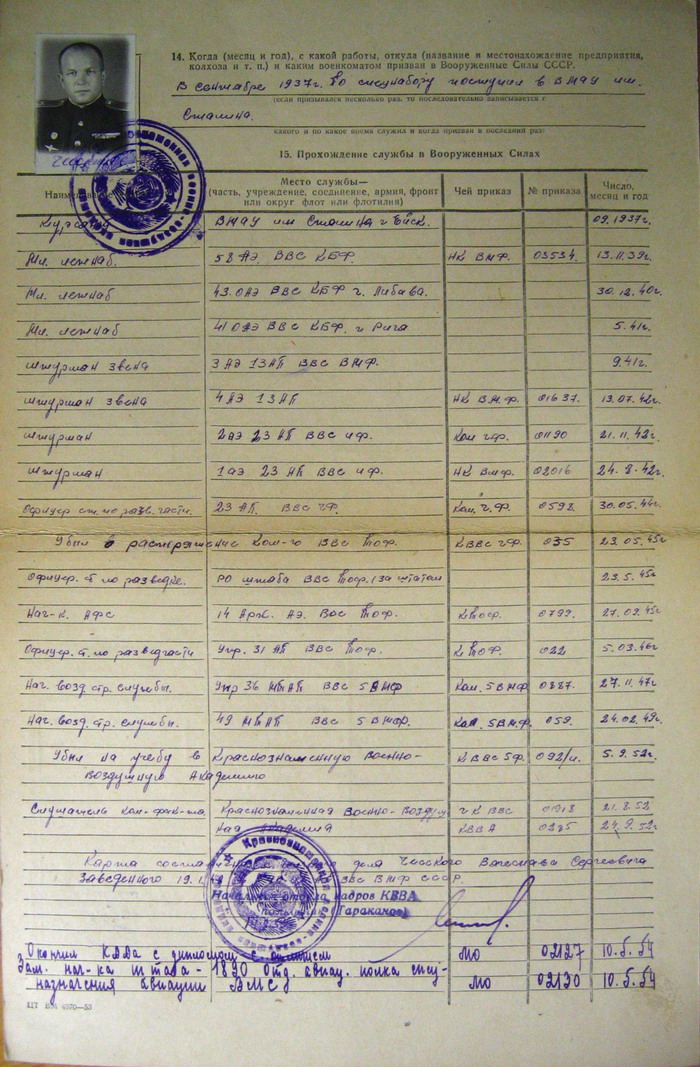 14. Когда (месяц и год), с какой работы, откуда (название и местонахождение предприятия,
колхоза и т. п.) и каким военкоматом призван в Вооруженные Силы СССР.
В сентябре 1937г. по спецнабору поступил в ВМАУ им.
(если призывался несколько раз, то последовательно записывается
Сталина.
какого и по какое время служил и когда призван в последний раз)
15. Прохождение службы в Вооруженных Силах
Место службы— (часть, учреждение, соединение, армия, фронт или округ флот или флотилия) Чей приказ № приказа Число, месяц и год
Курсант ВМАУ им Сталина г Ейск. 09.1937г.
Мл. летнаб. 58 АЭ. ВВС КБФ. НК ВМФ. 03534. 13.11.39г.
Мл. летнаб 43.ОАЭ ВВС КБФ г. Либава. 30.12.40г.
Мл. летнаб 41 ОАЭ ВВС КБФ. г Рига 5.41г.
Штурман звена 3 АЭ 13 АП ВВС ВМФ. 9.41г.
Штурман звена 4 АЭ 13 АП НК ВМФ. 01637. 13.07.42г.
Штурман 2аэ 23 АП ВВС чф. Ком чф. 01190 21.11.42г.
Штурман 1аэ 23 АП ВВС чф. НК ВМФ. 02016 24.8.42г.
Офицер ст. по разв. части. 23 АП. ВВС ЧФ. Ком. Ч.Ф. 0598. 30.05.44г.
Убыл в распоряжение Ком-го ВВС Тоф. КВВС ЧФ. 035 23.05.45г
Офицер. ст по разведке. РО штаба ВВС Тоф. /за штатом 23.5.45г
Нач-к АФС 14 АЭ. ВВС Тоф. КТоф. 0799. 27.09.45г
Офицер. ст. по разведчасти Упр. 31 АП ВВС Тоф. КТоФ. 022 5.03.46г
Нач. возд стр. службы. Упр 36 МТАП ВВС 5ВМФ Ком. 5ВМФ. 0887. 27.11.47г
Нач. возд. стр. службы. 49 МТАП ВВС 5ВМФ. Ком. 5ВМФ. 059. 24.02.49г.
Убыл на учебу в Краснознаменную Военно- КВВС 5ф. 092/л. 5.9.52г.
Воздушную Академию
Слушатель ком-фак-та Краснознаменная Военно-Воздуш ГК ВВС 01918 21.8.52
ная Академия КВВА 0285 24.9.52г
Карта дела Сергеевича
Заведенного ВВС ВМФ СССР.
Начальник отдела кадров КВВА
Тараканов
Окончил КВВА с дипломом с отличием МО 02127 10.5.54
Зам. нач-ка штаба - 1890 Отд. авиац. полка спец-
назначения авиации ВМС МО 02130 10.5.54